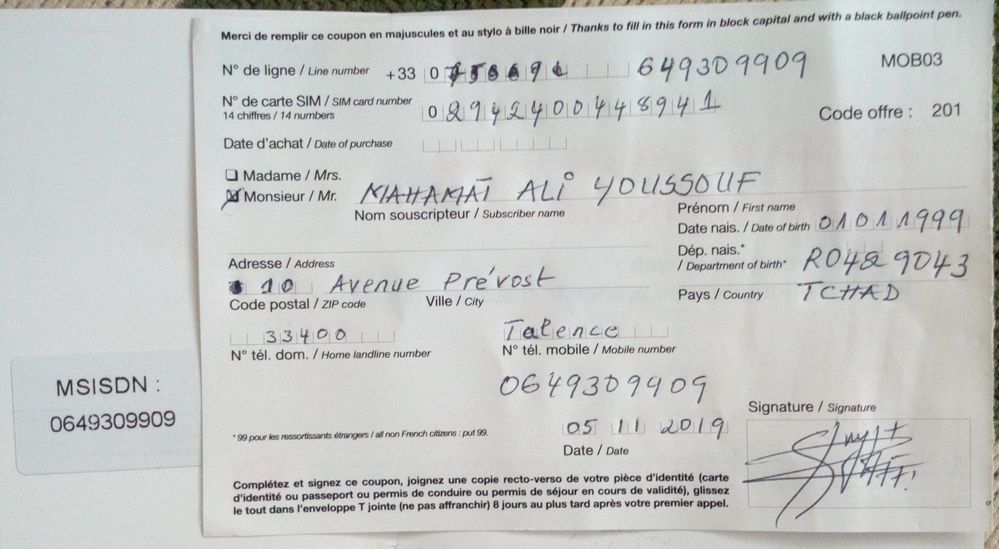 Merci de remplir ce coupon en majuscules et au stylo à bille noir / Thanks to fill in this form in block capital and with a black ballpoint pen.
N° de ligne / Line number +33 0 649309909 MOB03
N° de carte SIM / SIM card number
14 chiffres / 14 numbers
0 2942400448941 Code offre : 201
Date d'achat / Date of purchase
Madame / Mrs.
Monsieur / Mr. MAHAMAT ALI YOUSSOUF
Nom souscripteur / Subscriber name Prénom / First name
Date nais. / Date of birth 01011999
Dép. nais.*
/ Department of birth* R04829043
Adresse / Address
10 Avenue Prévost
Code postal / ZIP code Ville / City Pays / Country TCHAD
33400 Talence
N° tél. dom. / Home landline number N° tél. mobile / Mobile number
0649309909
MSISDN :
0649309909
Signature / Signature
* 99 pour les ressortissants étrangers / all non French citizens : put 99.
05 11 2019
Date / Date
Complétez et signez ce coupon, joignez une copie recto-verso de votre pièce d'identité (carte
d'identité ou passeport ou permis de conduire ou permis de séjour en cours de validité), glissez
le tout dans l'enveloppe T jointe (ne pas affranchir) 8 jours au plus tard après votre premier appel.